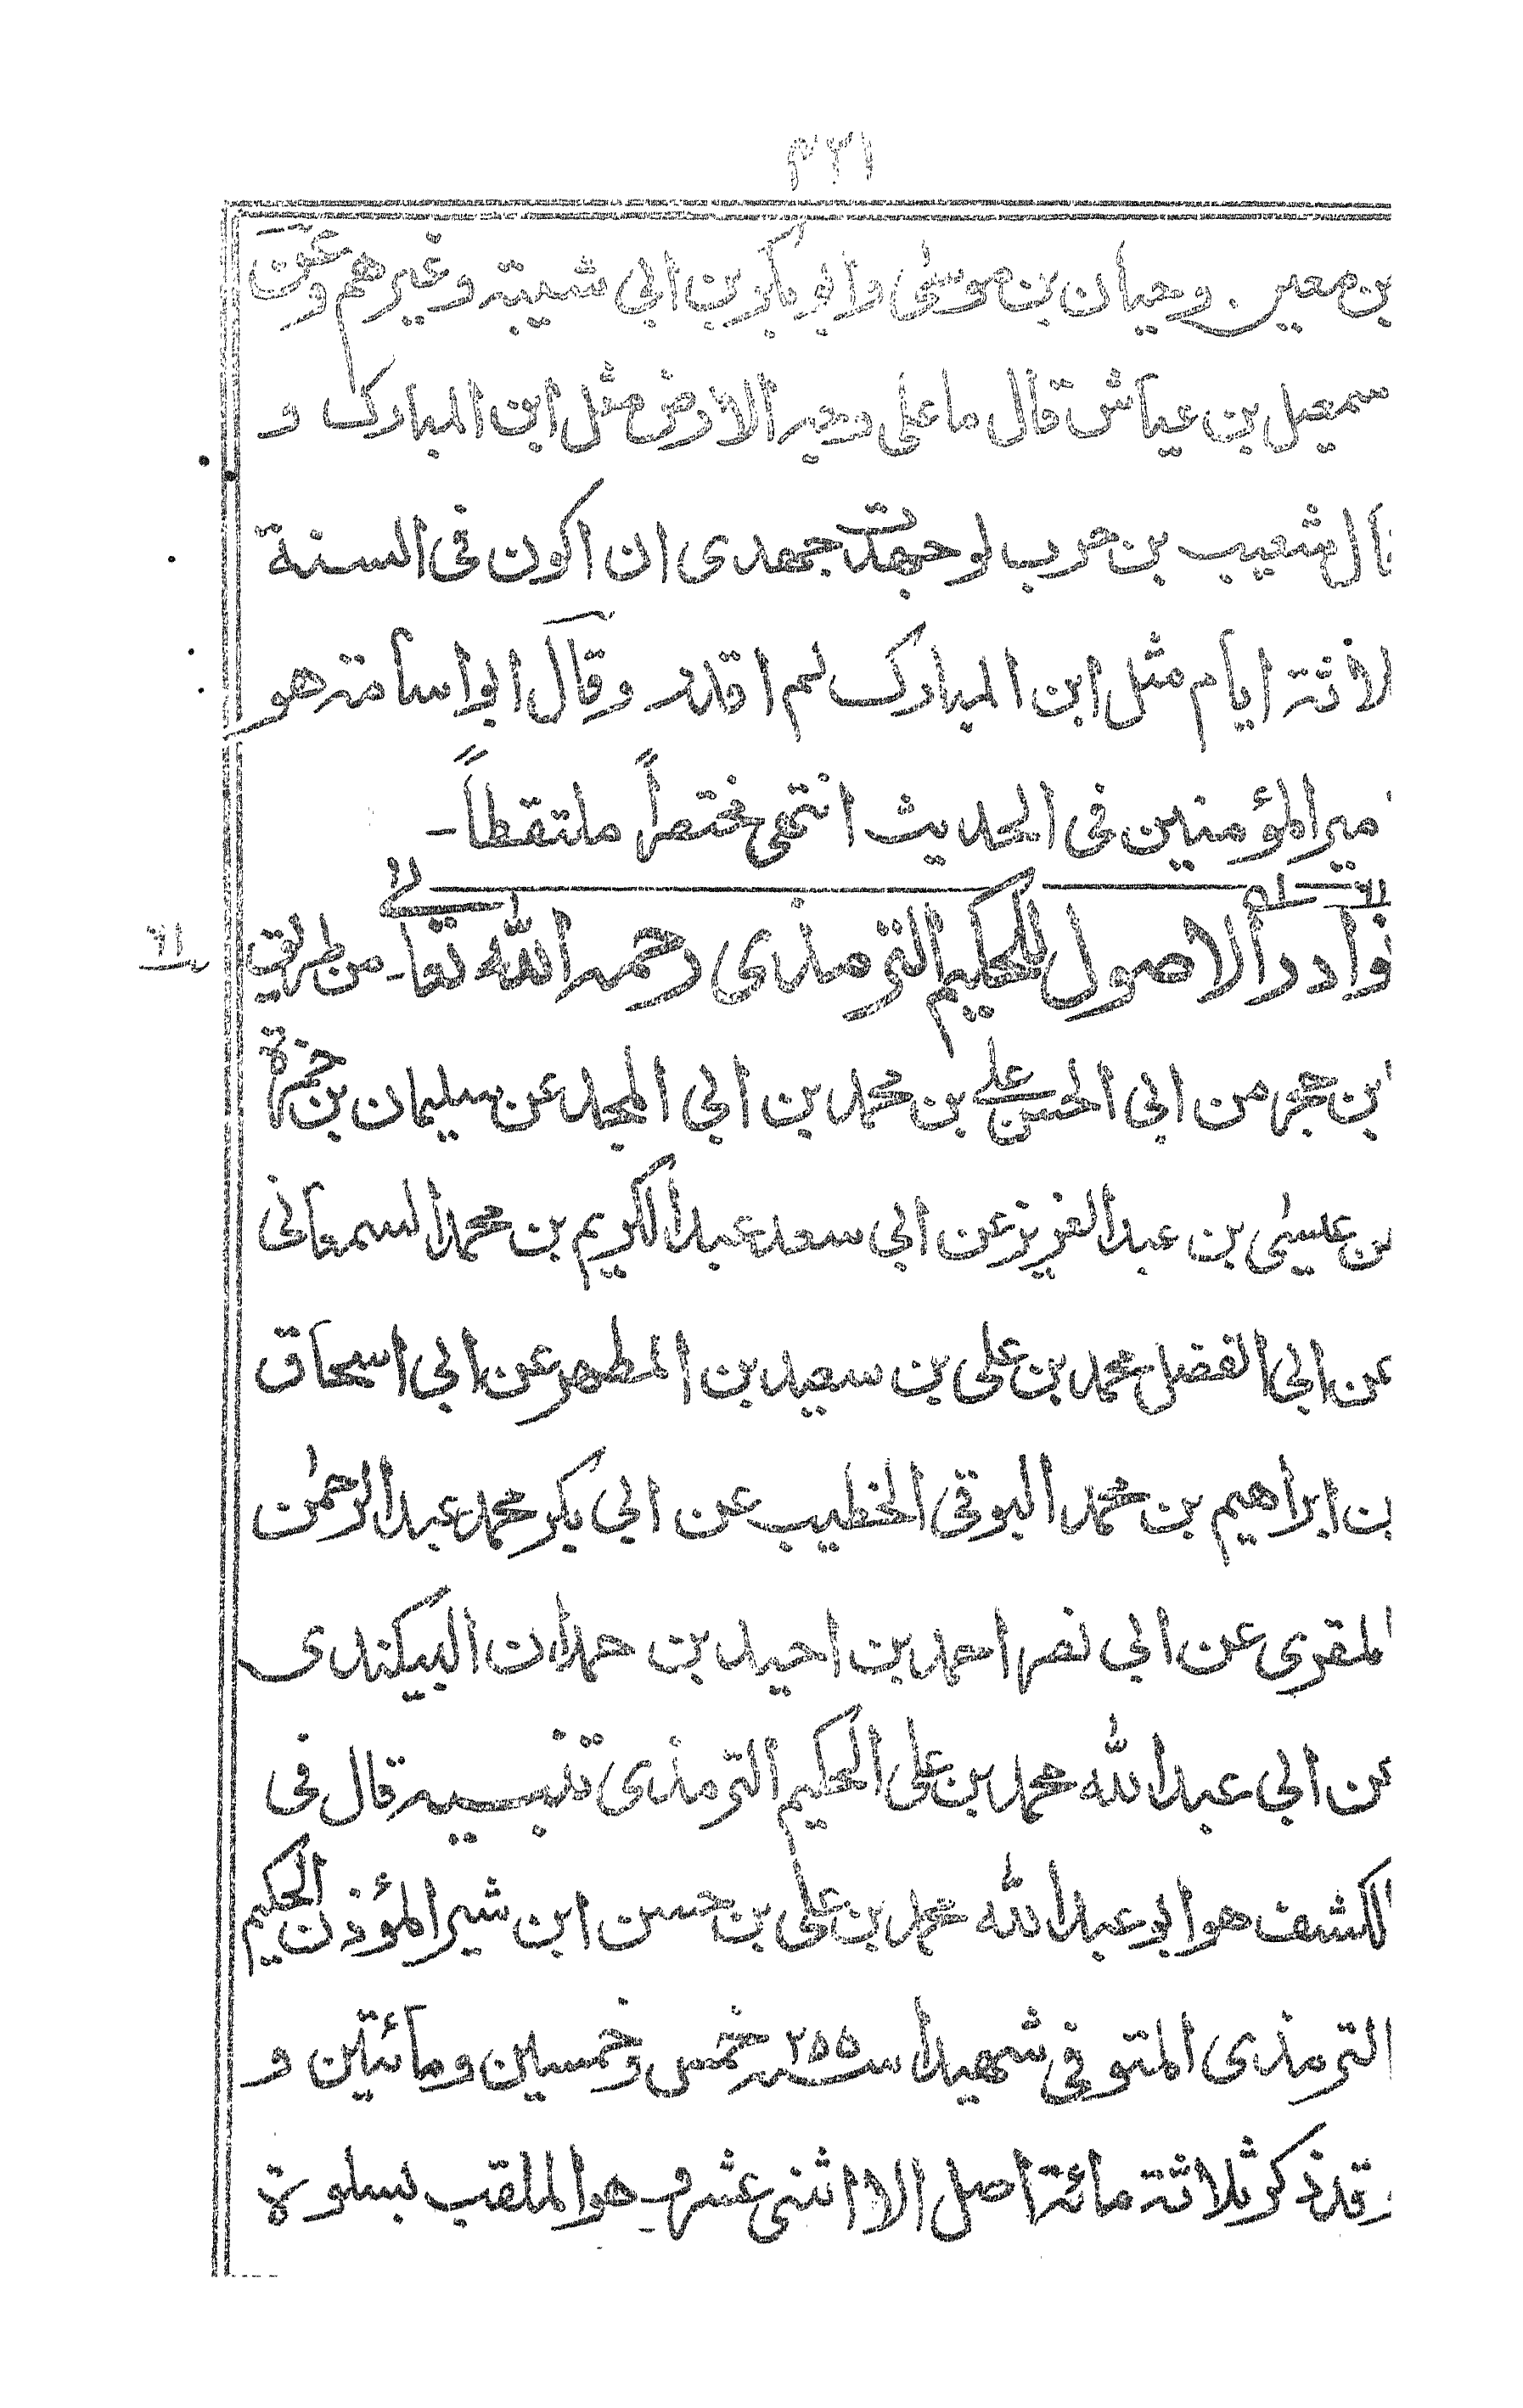 ٣٢١
بن معين وحبان بن موسىٰ وابو بكر بن ابى شيبة وغيرهم وعن
سمعيل بن عياش قال ما على وجه الارض مثل ابن المبارك و
قال شعيب بن حرب لو جهدت جهدى ان اكون فى السنة
لاثة ايام مثل ابن المبارك لم اقدر وقال ابو اسامة هو
مير المؤمنين فى الحديث انتهى مختصراً ملتقطاً-
نوادر الاصول للحكيم الترمذى رحمه الله تعا- من طريق
ابن حجر من ابى الحسن على بن محمد بن ابى المجد عن سليمان بن حمزة
عن عيسىٰ بن عبد العزيز عن ابى سعد عبد الكريم بن محمد السمعانى
عن ابى الفضل محمد بن على بن سعيد بن المطهر عن ابى اسحاق
بن ابراهيم بن محمد البوقى الخطيب عن ابى بكر محمد عبد الرحمٰن
المقرى عن ابى نصر احمد بن احيد بن حمدان البيكندى
عن ابى عبد الله محمد بن على الحكيم الترمذى تنبيه قال فى
الكشف هو ابو عبد الله محمد بن على بن حسن ابن شير المؤذن الحكيم
الترمذى المتوفى شهيدا سنة ٢٥٥ خمس وخمسين ومائتين و
قد ذكر ثلاثة مائة اصل الا اثنى عشر و هو الملقب بسلوة